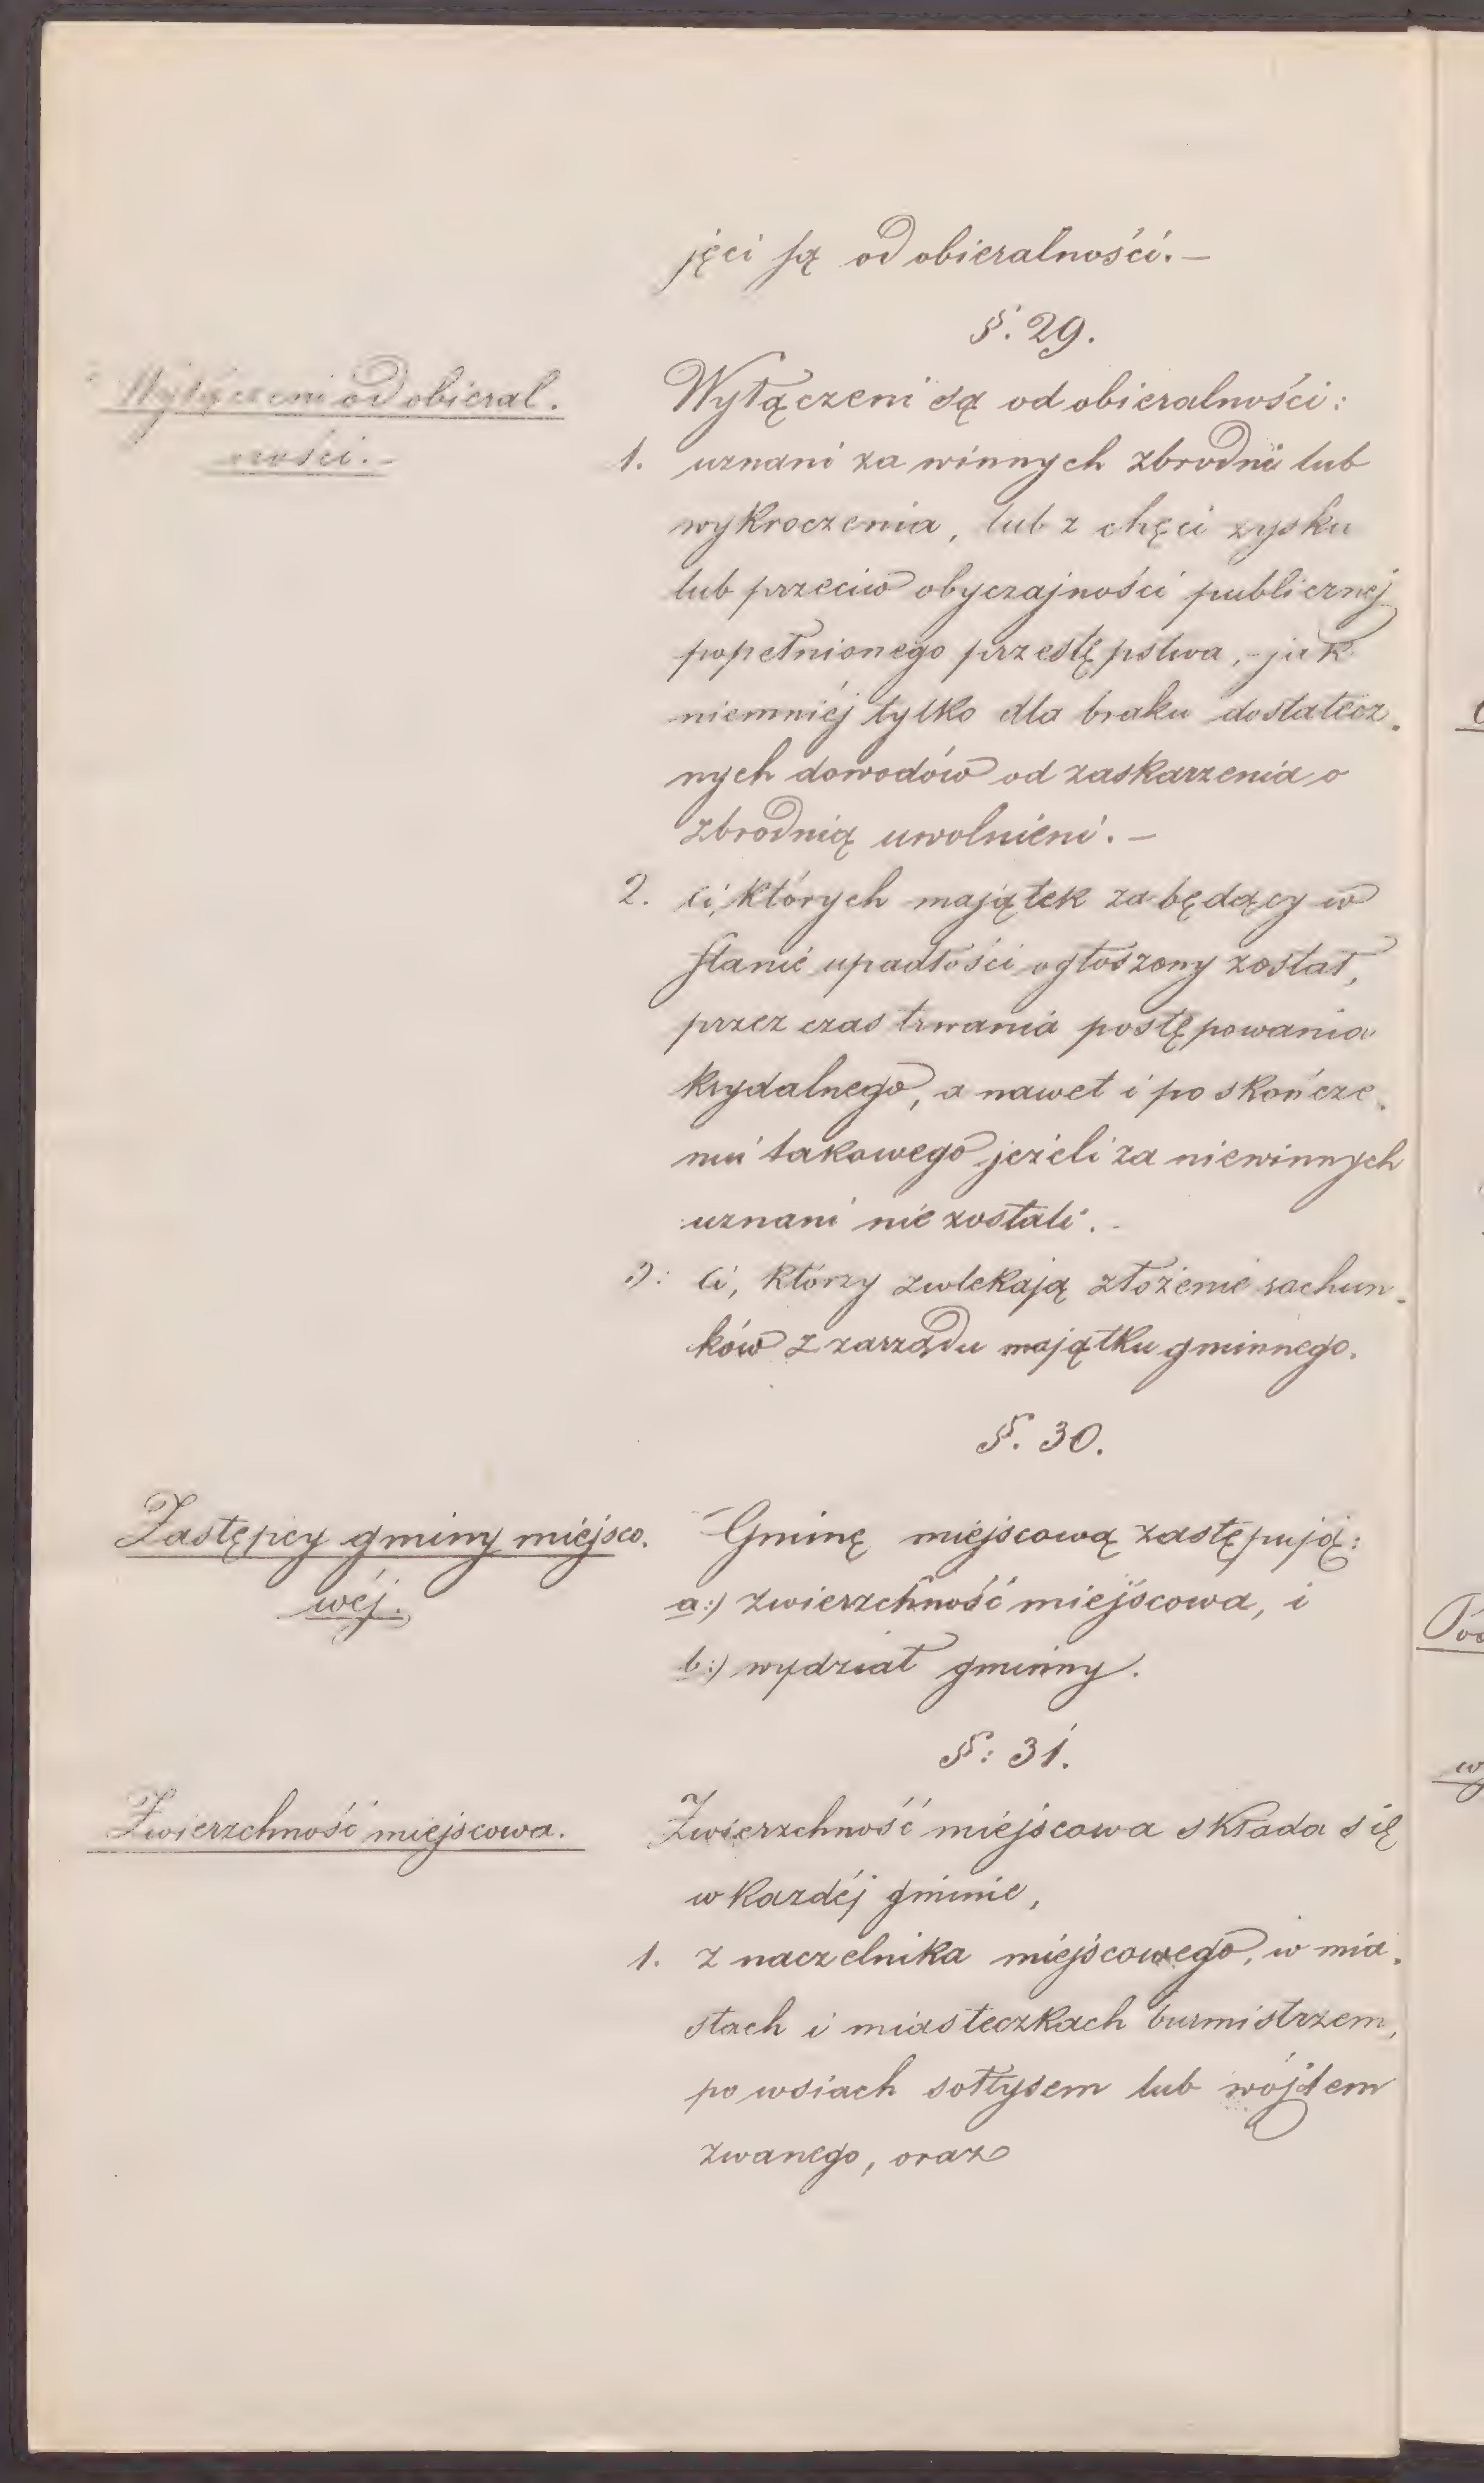 jęci są od obieralności.—
§. 29.
Wyłączeni od obieral.
ności.—
Wyłączeni są od obieralności:
1. uznani za winnych zbrodni lub
wykroczenia, lub z chęci zysku
lub przeciw obyczajności publicznej
popełnionego przestępstwa, jak
niemniéj tylko dla braku dostatecz.
nych dowodów od zaskarzenia o
zbrodnią uwolnieni.—
2. ci, których majątek za będący w
stanie upadłości ogłoszony został,
przez czas trwania postępowania
krydalnego, a nawet i po skończe.
niu takowego jeżeli za niewinnych
uznani nie zostali.
3: ci, którzy zwlekają złożenie rachun.
ków z zarządu majątku gminnego.
§. 30.
Zastępcy gminy miejsco.
wéj.
Gminę miejscową zastępują:
a:) zwierzchność miejscowa, i
b:) wydział gminny.
§: 31.
Zwierzchność miejscowa.
Zwierzchność miejscowa składa się
w kazdéj gminie,
1. z naczelnika miejscowego, w mia.
stach i miasteczkach burmistrzem,
po wsiach sołtysem lub wójtem
zwanego, oraz